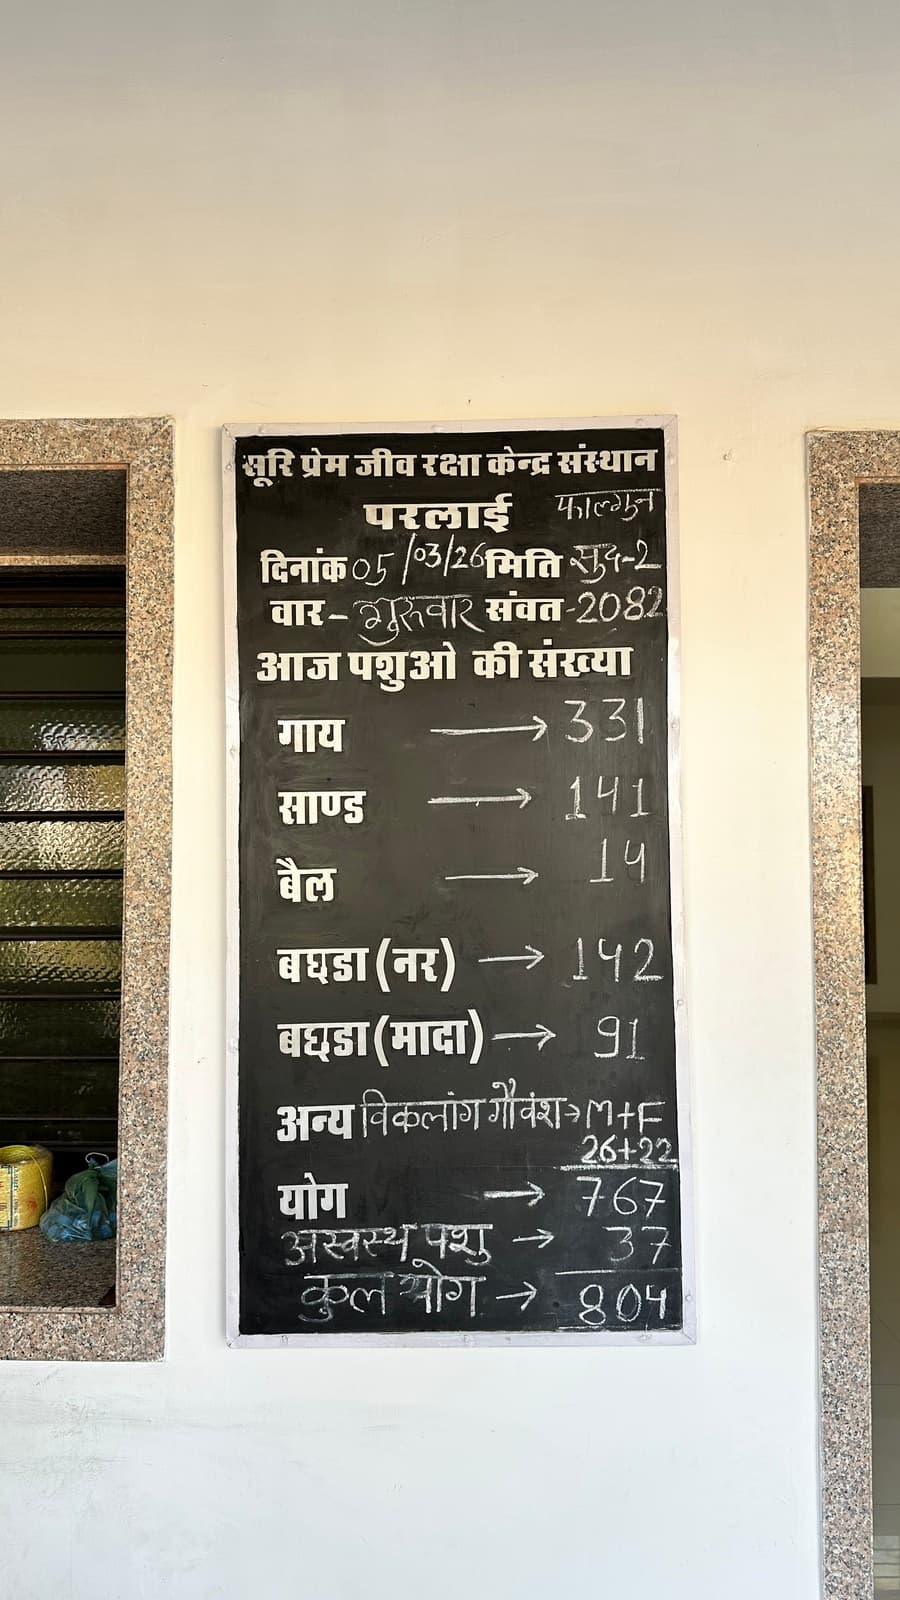 सूरि प्रेम जीव रक्षा केन्द्र संस्थान
परलाई फाल्गुन
दिनांक 05/03/26 मिति सुद-2
वार- गुरुवार संवत-2082
आज पशुओ की संख्या
गाय → 331
साण्ड → 141
बैल → 14
बछडा (नर) → 142
बछडा (मादा) → 91
अन्य विकलांग गौवंश → M+F
26+22
योग → 767
अस्वस्थ पशु → 37
कुल योग → 804